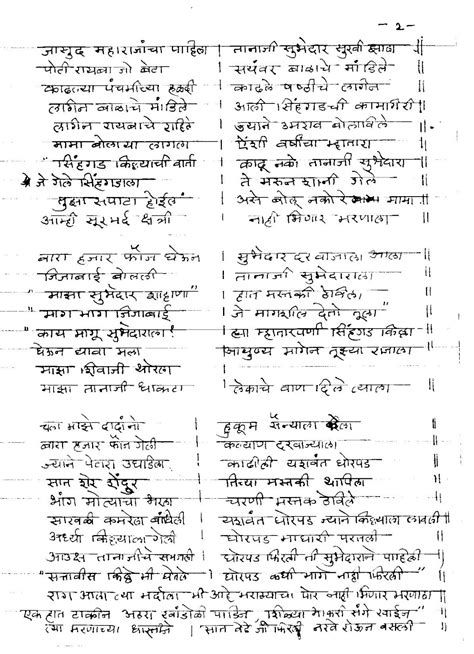 - 2 -
जासुद महाराजांचा पाहिला | तानाजी सुभेदार सुखी झाला ||
पोटी रायबा जो बेटा | सयंवर बाळाचे मांडिले ||
काढल्या पंचमीच्या हळदी | काढले षष्ठीचे लागीन ||
लागीन बाळाचे मांडिले | आली सिंहगडची कामगिरी ||
लागीन रायबाचे राहिले | ज्याने उमराव बोलाविले ||
मामा बोलाया लागला | ऐंशी वर्षांचा म्हातारा ||
"सिंहगड किल्ल्याची वार्ता | काढू नको तानाजी सुभेदारा ||
जे गेले सिंहगडाला | ते मरून शानी गेले ||
तुझा सपाटा होईल | असे बोलू नको रे मामा ||
आम्ही सूरमर्द क्षत्री | नाही भिणार मरणाला ||
बारा हजार फौज घेऊन | सुभेदार दरवाजाला आला ||
जिजाबाई बोलली | तानाजी सुभेदाराला ||
"माझा सुभेदार शाहाणा" | हात मस्तकी ठेविला ||
"माग माग जिजाबाई | जे मागशील देतो तूला" ||
"काय मागू सुभेदाराला! | ह्या म्हातारपणी सिंहगड किल्ला ||
घेऊन यावा मला | आयुष्य मागेन तूझ्या राजाला ||
माझा शिवाजी थोरला |
माझा तानाजी धाकटा | लेकाचे वाण दिले त्याला ||
चला माझे दादांनो | हुकूम सैन्याला केला ||
बारा हजार फौज गेली | कल्याण दरवाज्याला ||
ज्याने पेटारा उघाडिला | काढीली यशवंत घोरपड ||
सात शेर शेंदूर | तिच्या मस्तकी थापिला ||
भांग मोत्यांचा भरला | चरणी मस्तक ठेविले ||
साखळी कमरेला बांधिली | यशवंत घोरपड ज्याने किल्ल्याला लावली ||
अर्ध्या किल्ल्याला गेली | घोरपड माघारी परतली ||
आउक्ष तानाजीचे | घोरपड फिरली ती सुभेदाराने पाहिली ||
"सत्तावीस किल्ले मी घेतले | घोरपड कधी मागे नाही फिरली" ||
राग आला त्या मर्दाला मी आहे मराठ्याचा पोर नाही भिणार मरणाला ||
एक हात टाकीन खांडोळी पाडीन भाकरी संगे खाईन" ||
त्या मरणाच्या धास्तीने | सात वेढे जी फिरली नखे रोऊन बसली ||